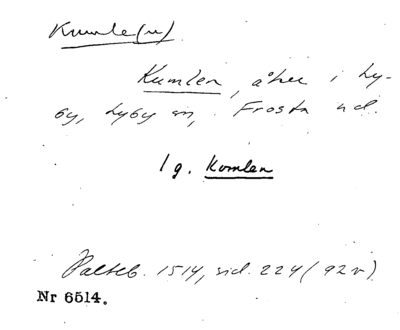 Kumle(n)
Kumlen, åker i Hy-
by, Hyby sn, Frosta hd.
1 g. Komlen
Palteb. 1514, sid. 224 (92v)
Nr 6514.